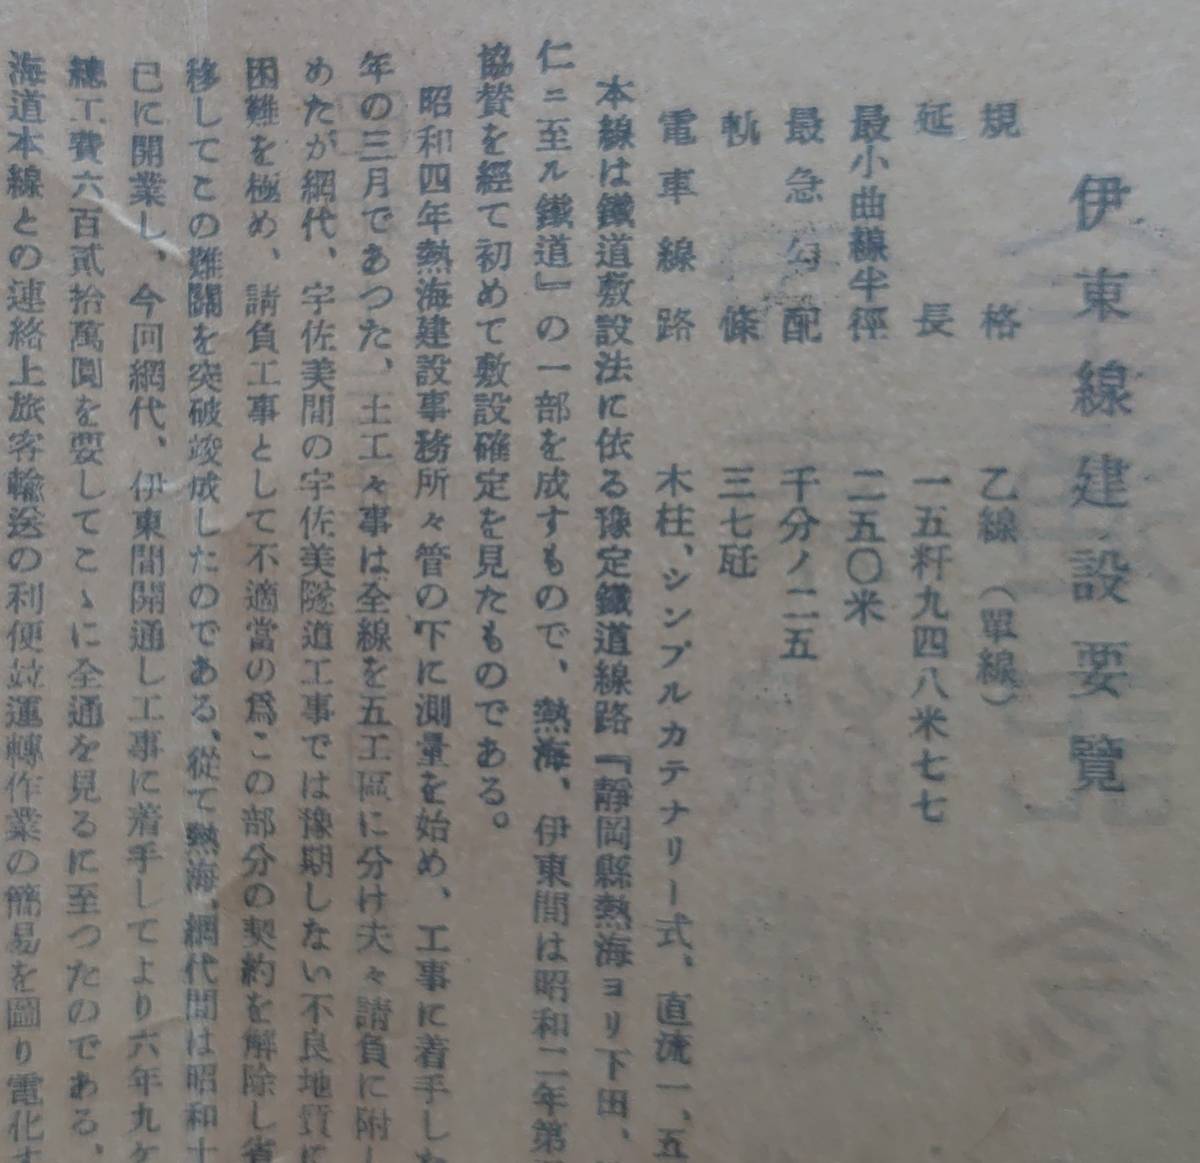 伊東線建設要覽
規格 乙線（單線）
延長 一五粁九四八米七七
最小曲線半徑 二五〇米
最急勾配 千分ノ二五
軌條 三七瓩
電車線路 木柱、シンプルカテナリー式、直流一、五
本線は鐵道敷設法に依る豫定鐵道線路『靜岡縣熱海ヨリ下田、
仁ニ至ル鐵道』の一部を成すもので、熱海、伊東間は昭和二年第
協贊を經て初めて敷設確定を見たものである。
昭和四年熱海建設事務所々管の下に測量を始め、工事に着手した
年の三月であつた、土工々事は全線を五工區に分け夫々請負に附し
めたが網代、宇佐美間の宇佐美隧道工事では豫期しない不良地質に
困難を極め、請負工事として不適當の爲この部分の契約を解除し省
移してこの難關を突破竣成したのである、從て熱海、網代間は昭和十
已に開業し、今回網代、伊東間開通し工事に着手してより六年九ケ
總工費六百貳拾萬圓を要してこゝに全通を見るに至つたのである、
海道本線との連絡上旅客輸送の利便竝運轉作業の簡易を圖り電化す